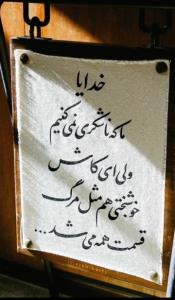 خدایا
ما که ناشکری نمی کنیم
ولی ای کاش
خوشبختی هم مثل مرگ
قسمت همه می شد...